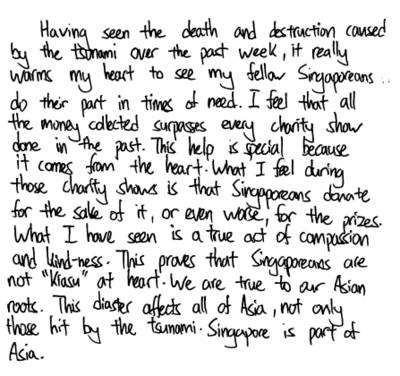 Having seen the death and destruction caused
by the tsunami over the past week, it really
warms my heart to see my fellow Singaporeans
do their part in times of need. I feel that all
the money collected surpasses every charity show
done in the past. This help is special because
it comes from the heart. What I feel during
those charity shows is that Singaporeans donate
for the sake of it, or even worse, for the prizes.
What I have seen is a true act of compassion
and kind-ness. This proves that Singaporeans are
not "Kiasu" at heart. We are true to our Asian
roots. This diaster affects all of Asia, not only
those hit by the tsunami. Singapore is part of
Asia.